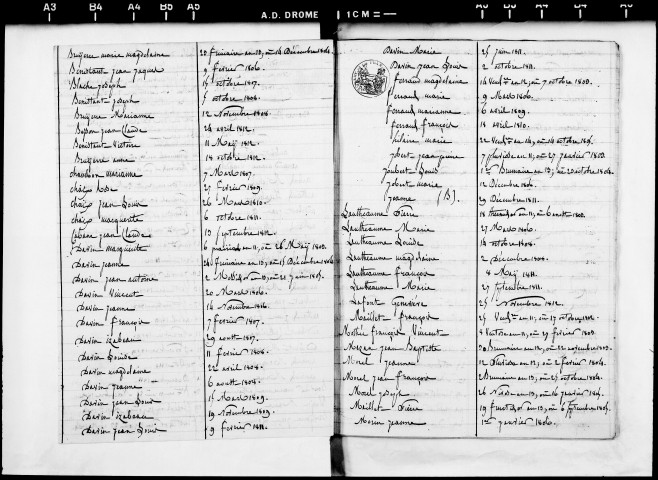 A3 B4 A4 B5 A5
A.D. DROME 1 CM
Bruyere marie magdelaine 20 frimaire an 13, ou 14 Décembre 1804.
Benistant jean jaques 9 février 1806.
Blache joseph 14 octobre 1807.
Benistant joseph 7 octobre 1808.
Bruyere Marianne 12 Novembre 1808.
Bosson jean Claude 24 avril 1812.
Benistant Victoire 11 Maij 1812.
Bruyere anne 18 octobre 1812.
chauchon marianne 7 Mars 1807.
chaix Rose 27 Février 1809.
chaix jean Louis 26 Mars 1810.
chaix marguerite 6 octobre 1811.
jean Claude 13 Septembre 1812.
Davin marguerite 6 prairial an 11, ou 26 Maij 1803.
Davin jeanne 24 frimaire an 13, ou 15 Décembre 1804.
Davin jean antoine 2 Messidor an 13, ou 21 juin 1805.
Davin Vincent 20 Mars 1806.
Davin jeanne 14 Novembre 1806.
Davin françois 7 février 1807.
Davin izabeau 29 août 1807.
Davin Louise 11 février 1808.
Davin magdelaine 22 avril 1808.
Davin jeanne 6 août 1808.
Davin jean Louis 15 Mars 1809.
Davin izabeau 19 Novembre 1809.
Davin jean Louis 9 février 1811.
Davin Marie 25 juin 1811.
Davin jean Louis 2 octobre 1811.
Ferraud magdelaine 7 octobre 1803.
Ferraud marie 9 Mars 1806.
Ferraud marianne 6 avril 1809.
Ferraud françois 18 avril 1810.
hilaire marie 22 Vend.re an 14, ou 14 octobre 1805.
jobert jeanne 7 pluviose an 11, ou 27 janvier 1803.
joubert Louis Brumaire an 13, ou octobre 1804.
jobert marie 12 Décembre 1806.
(B). 29 Décembre 1811.
Lautheaume Pierre 18 thermidor an 11, ou 6 août 1803.
Lautheaume Marie 27 Mars 1806.
Lautheaume Louise 14 octobre 1808.
Lautheaume magdelaine 2 décembre 1808.
Lautheaume françois 4 Maij 1811.
Lautheaume Marie 27 Septembre 1811.
Lafont Genevieve 25 Novembre 1812.
Maillet françois 25 Vend.re an 11, ou 17 octobre 1802.
Mothé françois Vincent 8 Ventose an 11, ou 27 février 1803.
jean Baptiste 20 Brumaire an 12, ou 12 novembre 1803.
Morel jeanne 12 pluviose an 12, ou 2 février 1804.
Morel jean françois Brumaire an 13, ou octobre 1804.
joseph 26 Nivose an 13, ou 16 janvier 1805.
Maillet Pierre 19 fructidor an 13, ou 6 Septembre 1805.
Morin jeanne 1er janvier 1806.